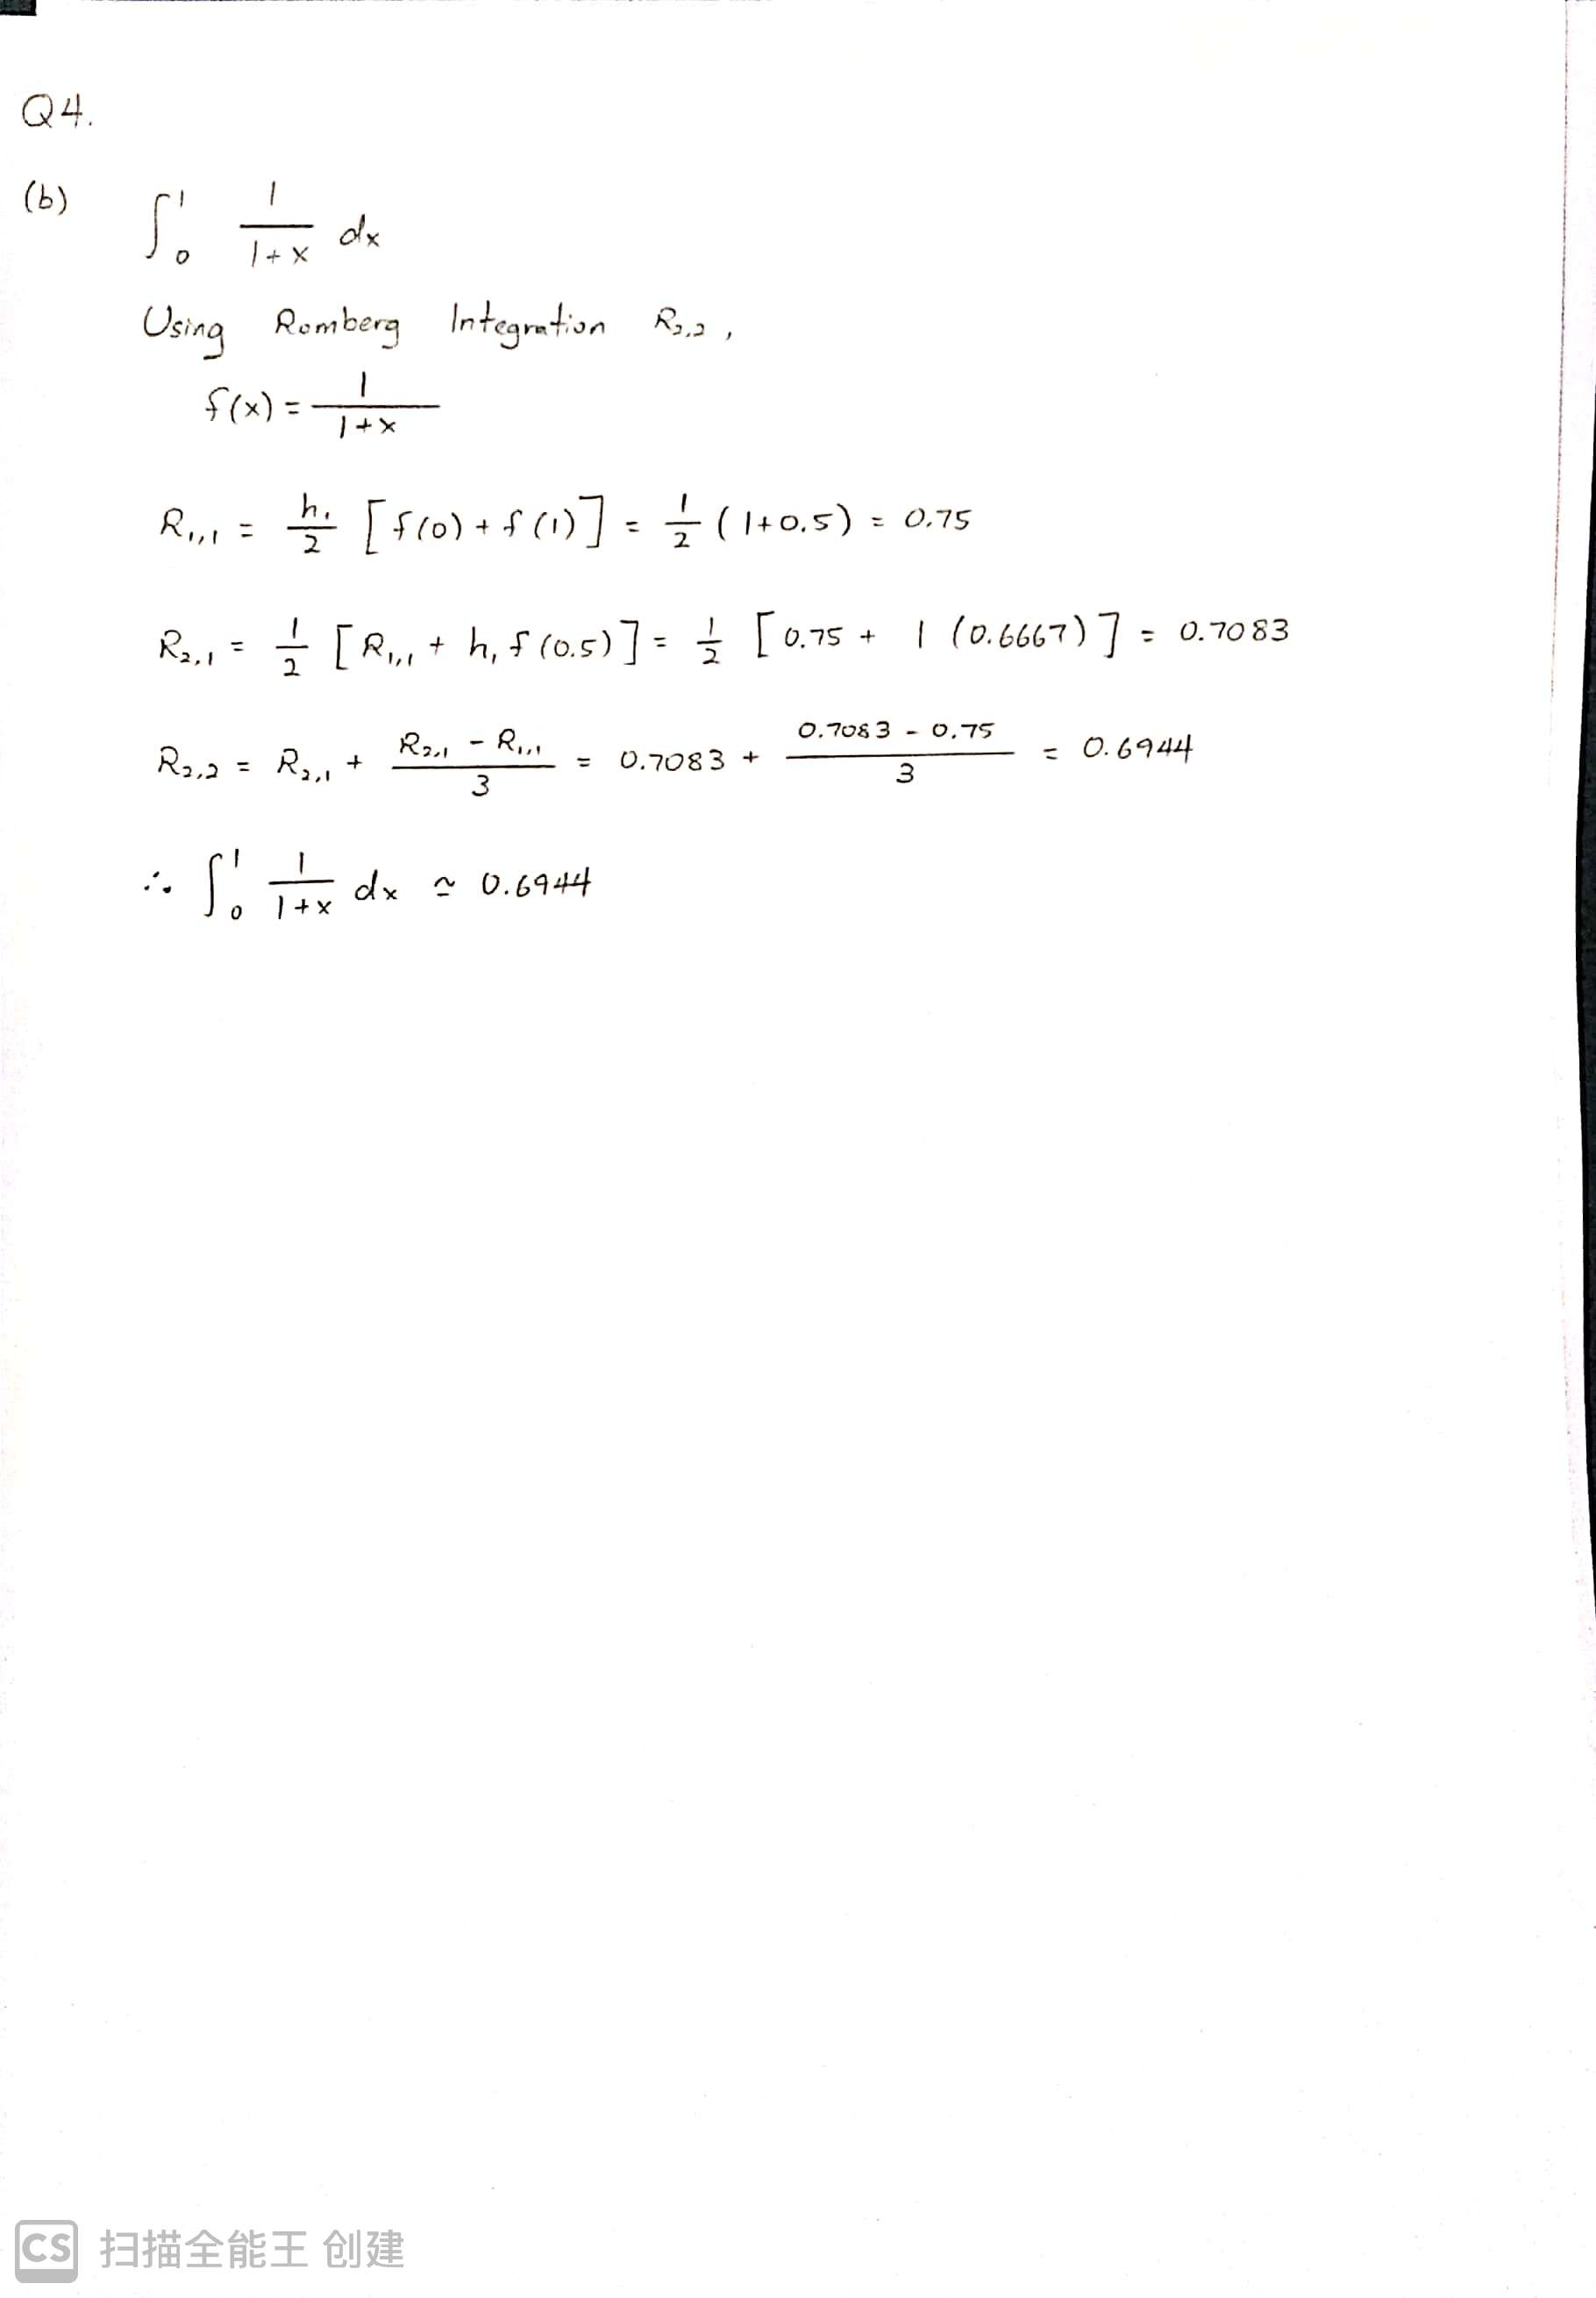 Q4.
(b) ∫₀¹ 1/(1+x) dx
Using Romberg Integration R₂,₂ ,
f(x) = 1/(1+x)
R₁,₁ = h₁/2 [f(0) + f(1)] = 1/2 (1+0.5) = 0.75
R₂,₁ = 1/2 [R₁,₁ + h₁ f(0.5)] = 1/2 [0.75 + 1 (0.6667)] = 0.7083
R₂,₂ = R₂,₁ + (R₂,₁ - R₁,₁)/3 = 0.7083 + (0.7083 - 0.75)/3 = 0.6944
∴ ∫₀¹ 1/(1+x) dx ≃ 0.6944
CS 扫描全能王 创建